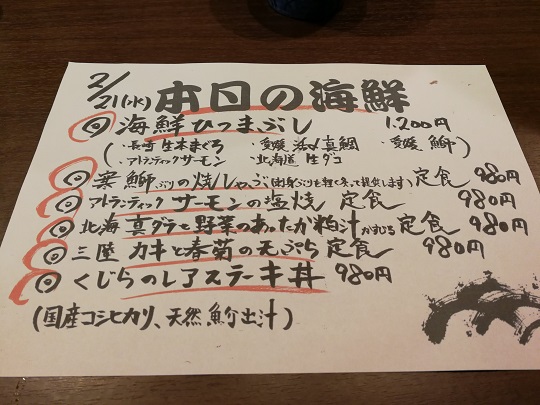 2/21(水) 本日の海鮮
◎ 海鮮ひつまぶし 1.200円
(・長崎 生本まぐろ ・愛媛 活〆真鯛 ・愛媛 鰤
・アトランティックサーモン ・北海道 生ダコ )
◎ 寒鰤ぶりの焼しゃぶ 定食 980円
◎ アトランティックサーモンの塩焼 定食 980円
◎ 北海真ダラと野菜のあったか粕汁かすじる 定食 980円
◎ 三陸 カキと春菊の天ぷら 定食 980円
◎ くじらのレアステーキ丼 980円
(国産コシヒカリ、天然魚介出汁)